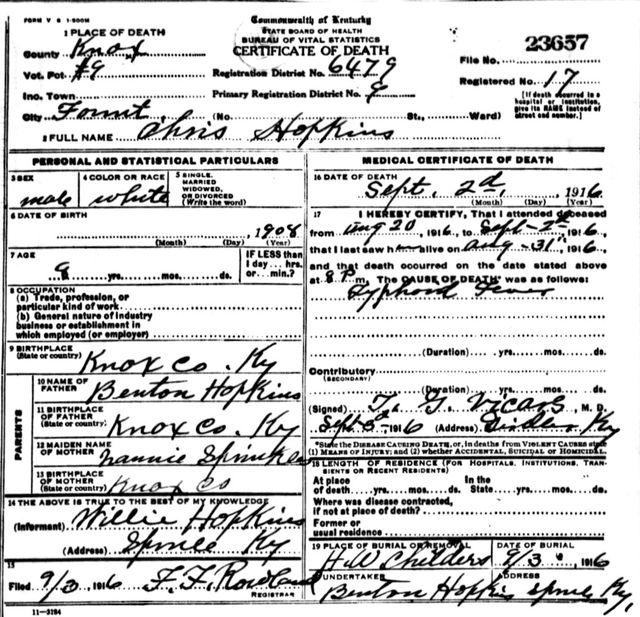 FORM V S 1-500M
Commonwealth of Kentucky
STATE BOARD OF HEALTH
BUREAU OF VITAL STATISTICS
CERTIFICATE OF DEATH
1 PLACE OF DEATH
County Knox
Vot. Pct #9
Inc. Town
City Fount
Registration District No. 6479
Primary Registration District No.
File No. 23657
Registered No. 17
(No. St., Ward)
[If death occurred in a hospital or institution, give its NAME instead of street and number.]
2 FULL NAME Chris Hopkins
PERSONAL AND STATISTICAL PARTICULARS
3 SEX male
4 COLOR OR RACE white
5 SINGLE, MARRIED WIDOWED, OR DIVORCED (Write the word)
6 DATE OF BIRTH 1908
(Month) (Day) (Year)
7 AGE
8 yrs. mos. ds.
IF LESS than 1 day... hrs. or min.?
8 OCCUPATION
(a) Trade, profession, or particular kind of work
(b) General nature of industry business or establishment in which employed (or employer)
9 BIRTHPLACE (State or country) Knox Co. Ky
PARENTS
10 NAME OF FATHER Benton Hopkins
11 BIRTHPLACE OF FATHER (State or country) Knox Co. Ky
12 MAIDEN NAME OF MOTHER Nannie
13 BIRTHPLACE OF MOTHER (State or country) Knox Co
14 THE ABOVE IS TRUE TO THE BEST OF MY KNOWLEDGE
(Informant) Willie Hopkins
(Address) Ky
15
Filed 9/3, 1916 F. F. Rowland
REGISTRAR
11-3184
MEDICAL CERTIFICATE OF DEATH
16 DATE OF DEATH
Sept. 2d, 1916
(Month) (Day) (Year)
17 I HEREBY CERTIFY, That I attended deceased
from Aug 20, 1916, to Sept-2nd, 1916,
that I last saw h alive on Aug-31st, 1916
and that death occurred on the date stated above
at 8 P m. The CAUSE OF DEATH* was as follows:
Typhord Fever
(Duration) yrs. mos. ds.
Contributory
(SECONDARY)
(Duration) yrs. mos. ds.
(Signed) T. G. Vicars, M. D.
Sept 1916 (Address) Ky
*State the DISEASE CAUSING DEATH, or, in deaths from VIOLENT CAUSES state (1) MEANS OF INJURY; and (2) whether ACCIDENTAL, SUICIDAL or HOMICIDAL.
18 LENGTH OF RESIDENCE (FOR HOSPITALS, INSTITUTIONS, TRANSIENTS OR RECENT RESIDENTS)
At place of death yrs. mos. ds. In the State yrs. mos. ds.
Where was disease contracted, if not at place of death?
Former or usual residence
19 PLACE OF BURIAL OR REMOVAL H.W Childers
DATE OF BURIAL 9/3 1916
UNDERTAKER Benton Hopkins
ADDRESS Ky,